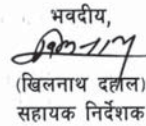 भवदीय,
(खिलनाथ दहाल)
सहायक निर्देशक